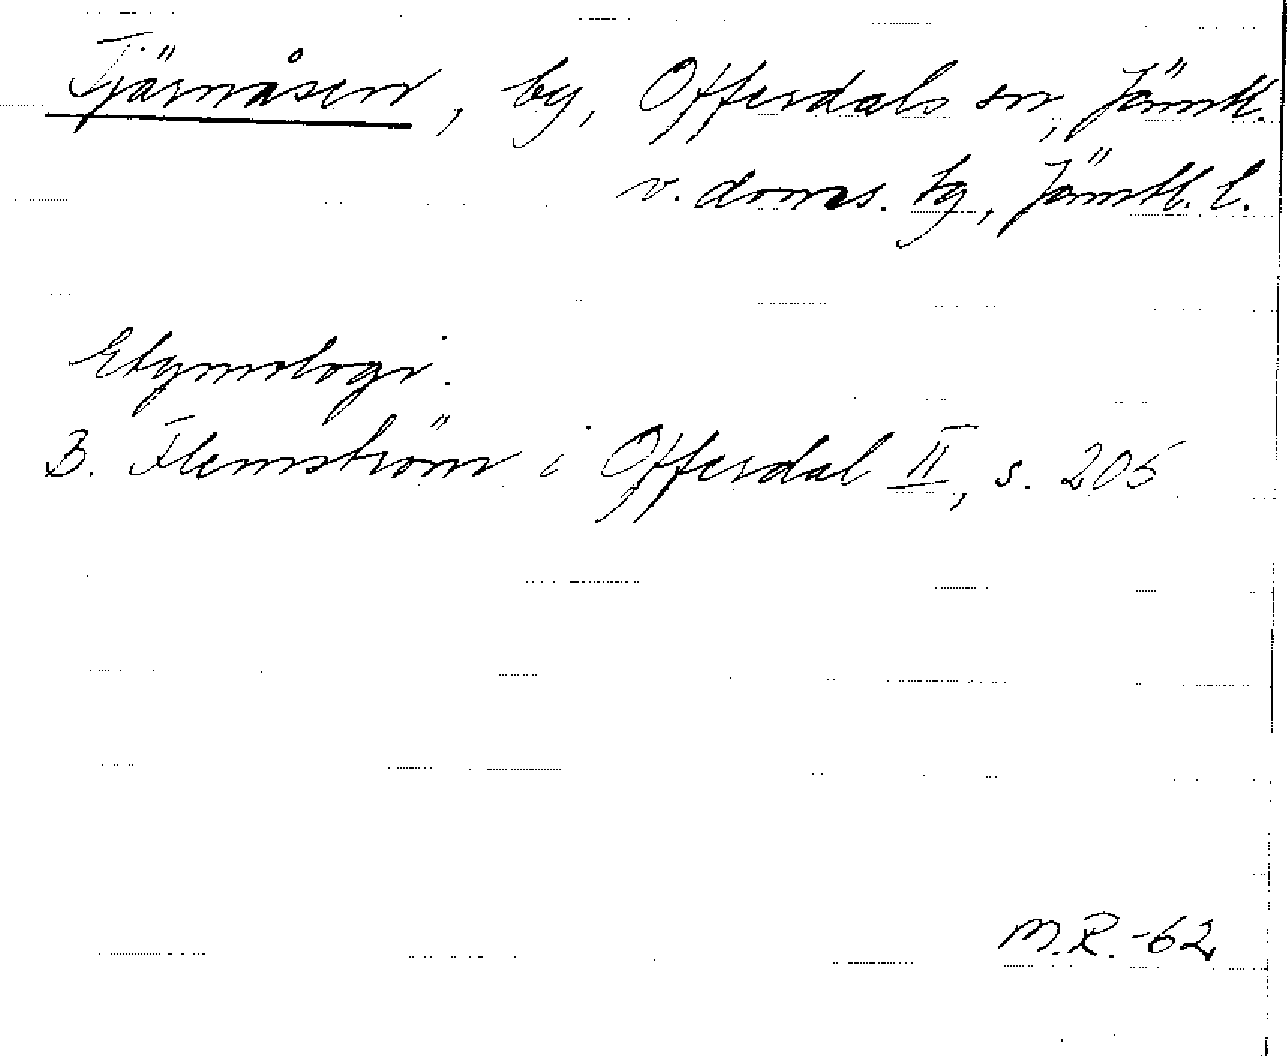 Tjärnåsen, by, Offerdals sn, Jämtl.
v. doms. tg, Jämtl. l.
Etymologi.
B. Flemström i Offerdal II, s. 205
M.R.-62